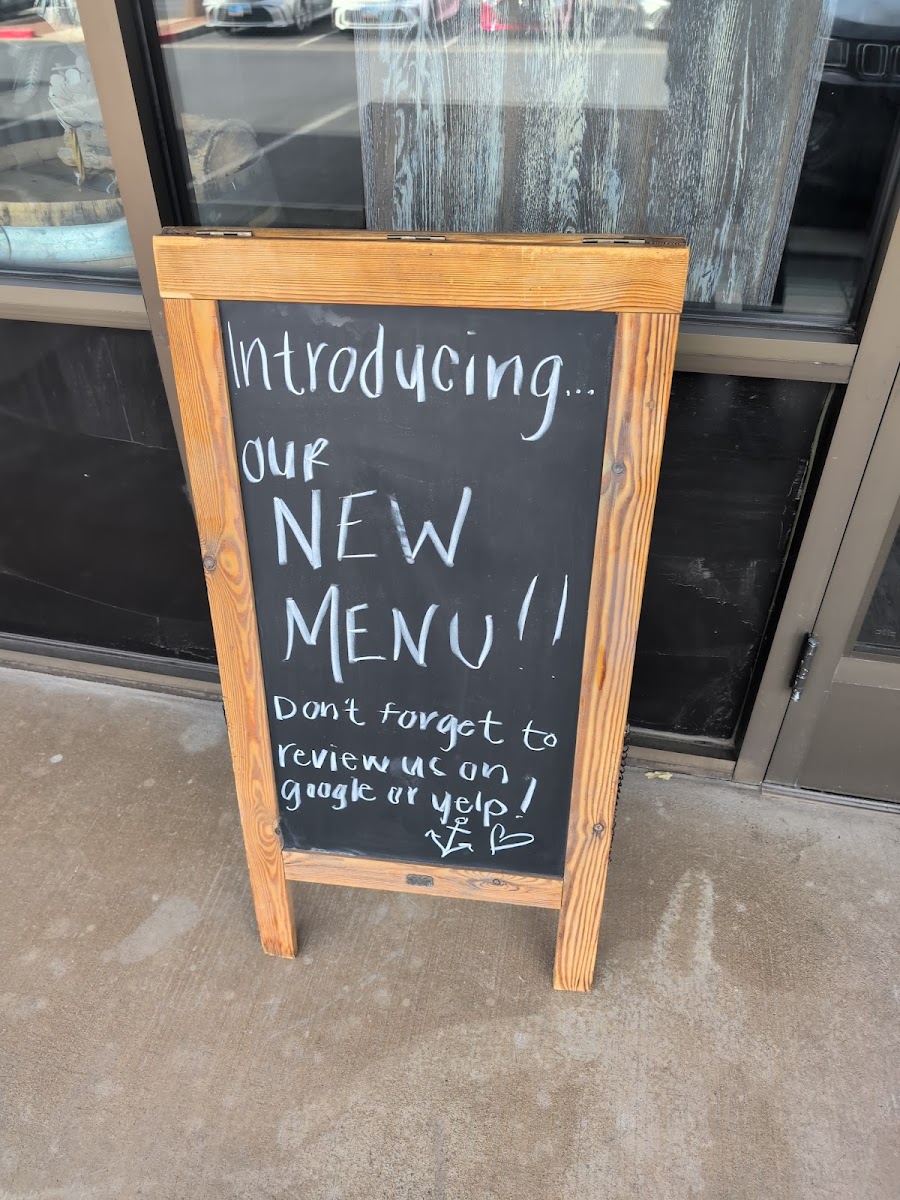 Introducing...
our
NEW
MENU!!
Don't forget to
review us on
google or yelp!